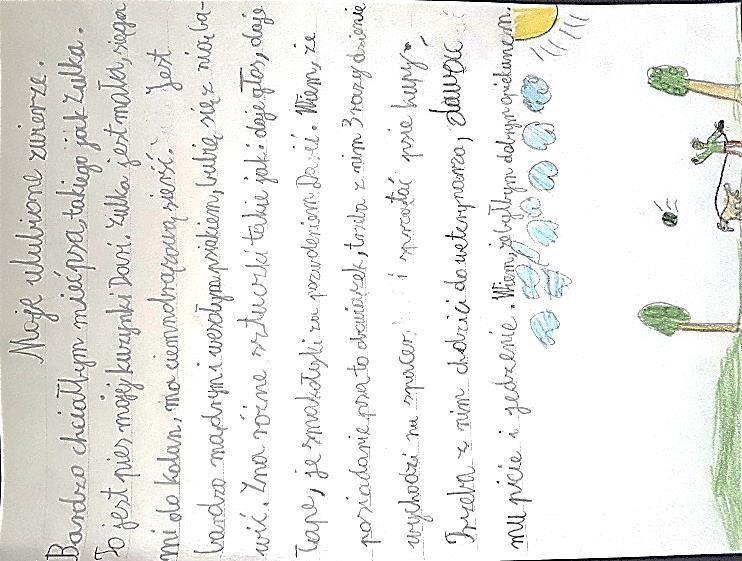 Moje ulubione zwierzę.
Bardzo chciałbym mieć psa takiego jak Zulka.
To jest pies mojej kuzynki Darii. Zulka jest mała, sięga
mi do kolan, ma ciemnobrązową sierść. Jest
bardzo mądrym i wesołym psiakiem, lubię się z nią ba-
wić. Zna różne sztuczki takie jak: daje głos, daje
łapę, je smakołyki za pozwoleniem Darii. Wiem, że
posiadanie psa to obowiązek, trzeba z nim 3 razy dziennie
wychodzić na spacer i sprzątać psie kupy.
Trzeba z nim chodzić do weterynarza, dawać
mu picie i jedzenie. Wiem, że byłbym dobrym opiekunem.